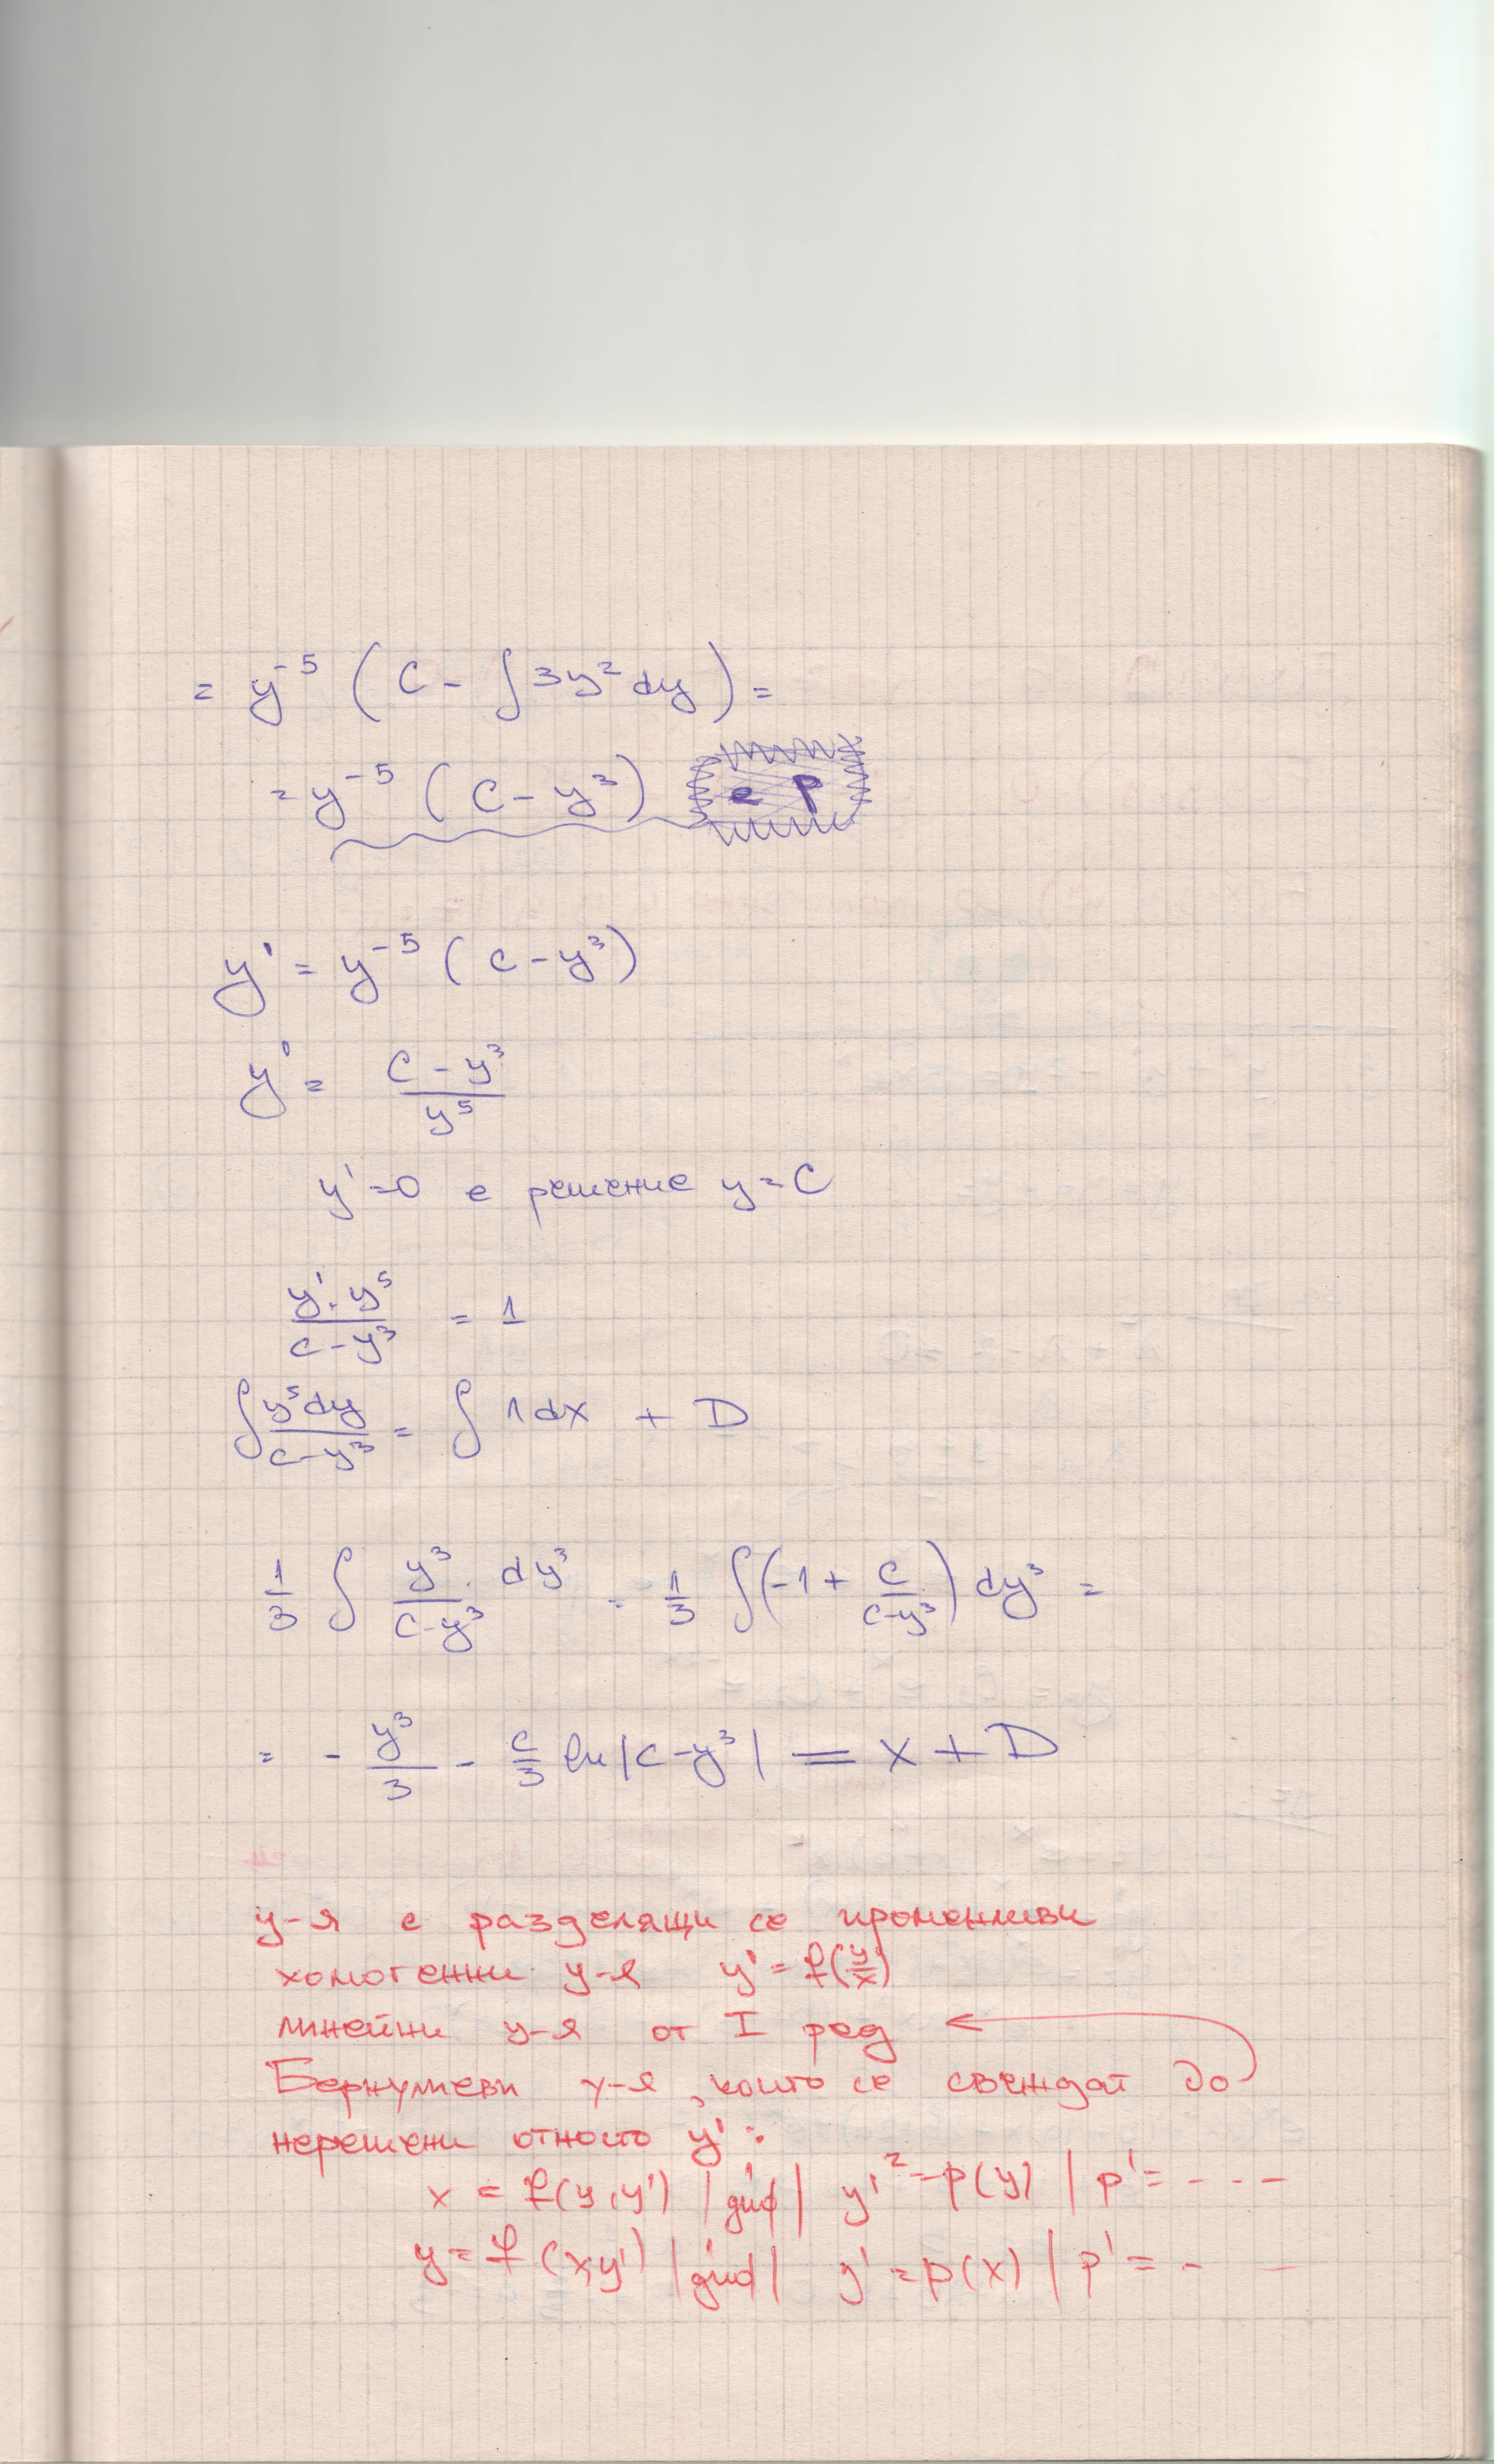 = y⁻⁵ (C - ∫3y²dy) =
= y⁻⁵ (C - y³) e p
y' = y⁻⁵ (c - y³)
y' = (C - y³)/y⁵
y' = 0 е решение y = C
(y'. y⁵)/(c - y³) = 1
∫ y⁵dy/(c - y³) = ∫ 1dx + D
1/3 ∫ y³/(c - y³) . dy³ = 1/3 ∫(-1 + c/(c - y³)) dy³ =
= - y³/3 - c/3 ln|c - y³| = x + D
у-я с разделящи се променливи
хомогенни у-я y' = f(y/x)
линейни у-я от I ред ←
Бернулиеви у-я, които се свеждат до
нерешени относто y' :
x = f(y, y') |диф| y'² = p(y) | p' = - - -
y = f(x, y') |диф| y' = p(x) | p' = - -